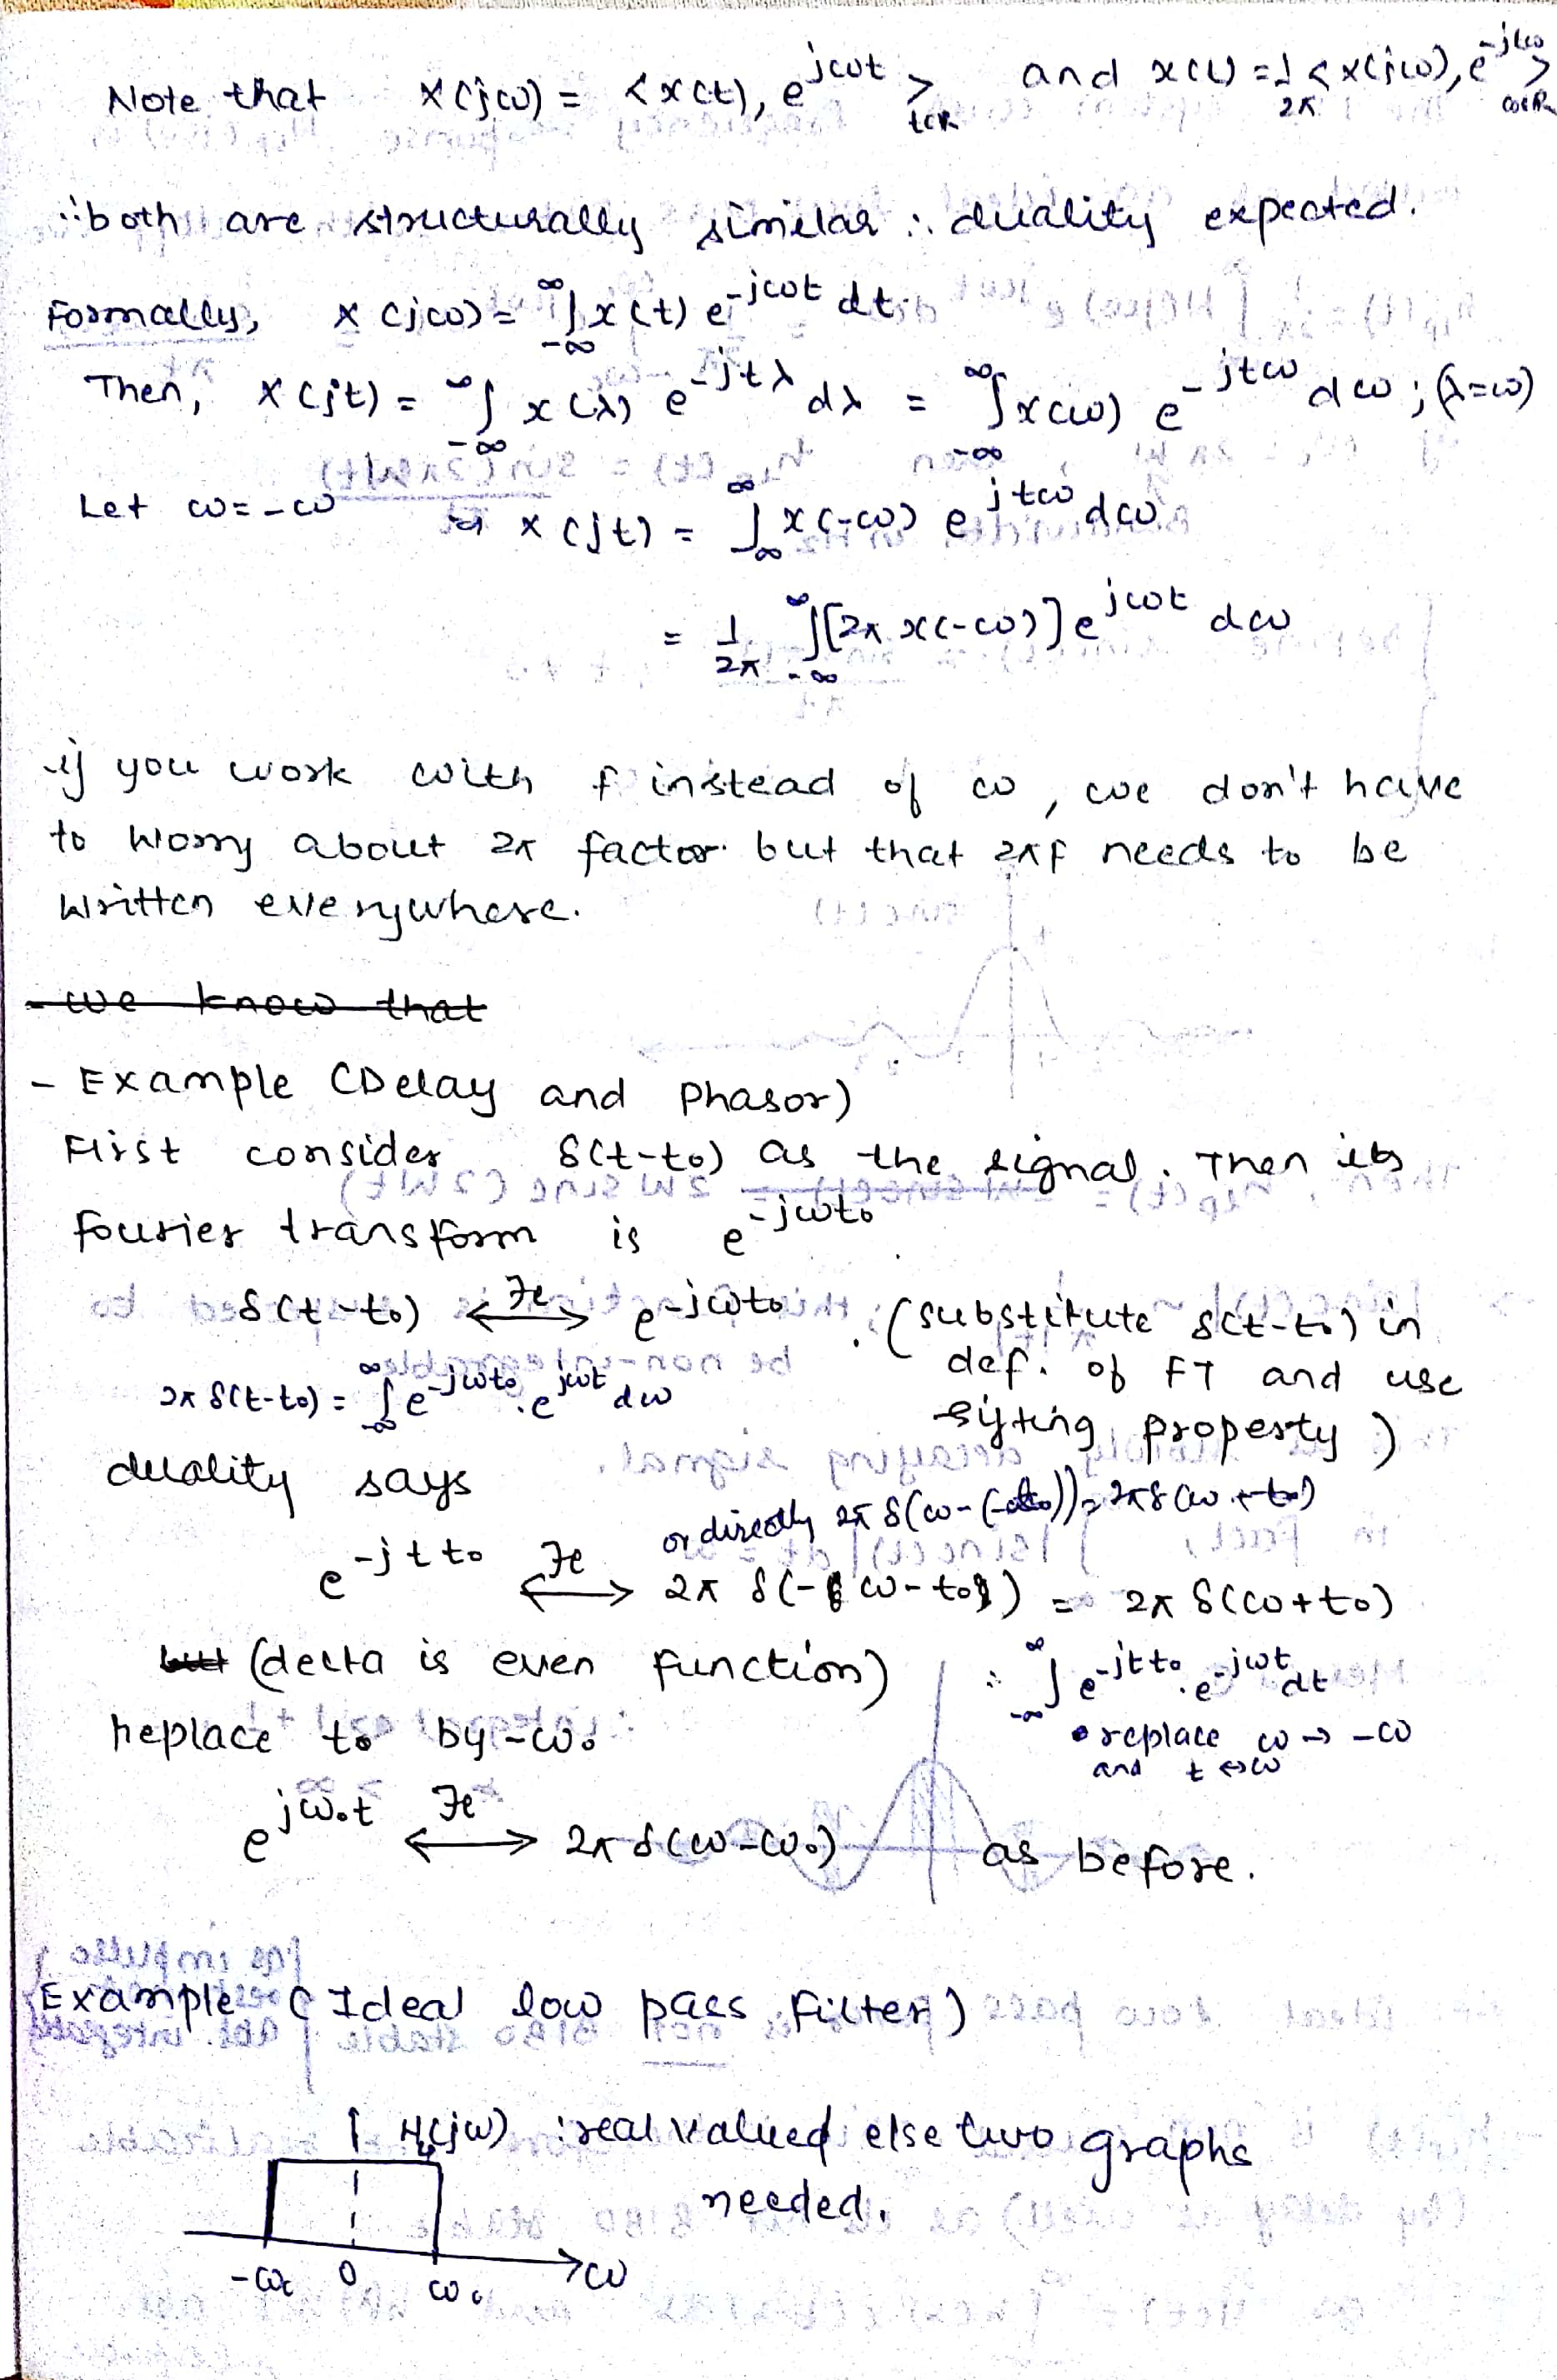 Note that X(jω) = <x(t), e^{jωt}>_{t∈R} and x(t) = 1/2π <X(jω), e^{-jtω}>_{ω∈R}
∵ both are structurally similar ∴ duality expected.
Formally, X(jω) = ∫_{-∞}^{∞} x(t) e^{-jωt} dt
Then, X(jt) = ∫_{-∞}^{∞} x(λ) e^{-jtλ} dλ = ∫_{-∞}^{∞} x(ω) e^{-jtω} dω ; (λ=ω)
Let ω = -ω ⇒ X(jt) = ∫_{-∞}^{∞} x(-ω) e^{jtω} dω
= 1/2π ∫_{-∞}^{∞} [2π x(-ω)] e^{jωt} dω
if you work with f instead of ω, we don't have
to worry about 2π factor but that 2πf needs to be
written everywhere.
- we know that
- Example (Delay and Phasor)
First consider δ(t-t₀) as the signal. Then its
fourier transform is e^{-jωt₀}
δ(t-t₀) ⟷^{FT} e^{-jωt₀}. (substitute δ(t-t₀) in
def. of FT and use
sifting property)
2π δ(t-t₀) = ∫_{-∞}^{∞} e^{-jωt₀}.e^{jωt} dω
duality says
or directly 2π δ(ω-(-t₀)) = 2πδ(ω+t₀)
e^{-jtt₀} ⟷^{FT} 2π δ(-ω-t₀) = 2π δ(ω+t₀)
but (delta is even function) ∵ ∫_{-∞}^{∞} e^{-jtt₀}.e^{-jωt} dt
replace ω → -ω
and t ↔ ω
Replace t₀ by -ω₀
e^{jω₀t} ⟷^{FT} 2π δ(ω-ω₀) as before.
Example (Ideal low pass filter)
H(jω) : real valued else two graphs
needed.
-ωc 0 ωc ω